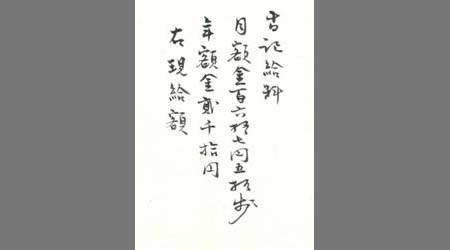 書記給料
月額金百六拾七円五拾銭
年額金貳千拾円
右現給額